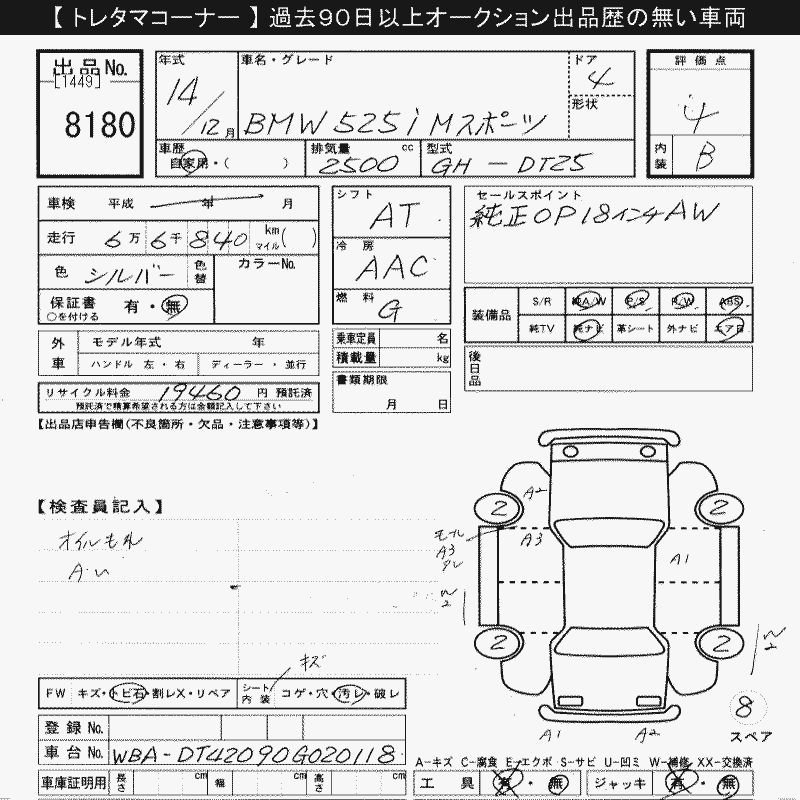 【トレタマコーナー】過去90日以上オークション出品歴の無い車両
出品No.
[1449]
8180
年式
14/12月
車名・グレード
BMW 525i Mスポーツ
ドア
4
形状
評価点
4
内装
B
車歴
自家用・( )
排気量
2500 cc
型式
GH-DT25
車検 平成 年 月
走行 6万6千840 km マイル( )
色 シルバー 色替
カラーNo.
保証書 有・無
○を付ける
シフト
AT
冷房
AAC
燃料
G
セールスポイント
純正OP18インチAW
装備品
S/R 純A/W P/S P/W ABS
純TV 純ナビ 革シート 外ナビ エアB
後日品
外車
モデル年式 年
ハンドル 左・右 ディーラー・並行
乗車定員 名
積載量 kg
書類期限
月 日
リサイクル料金 19460 円 預託済
預託済で精算希望される方は金額記入して下さい
【出品店申告欄(不良箇所・欠品・注意事項等)】
【検査員記入】
オイルもれ
A
A2
2 2
モール
A3
A3
A1
2 2
8
スペア
A1 A2
キズ
FW キズ・トビ石・割レX・リペア
シート内装 コゲ・穴・汚レ・破レ
登録No.
車台No. WBA-DT42090G020118
車庫証明用 長さ cm 幅 cm 高さ cm
A-キズ C-腐食 E-エクボ S-サビ U-凹ミ W-補修 XX-交換済
工具 有・無 ジャッキ 有・無